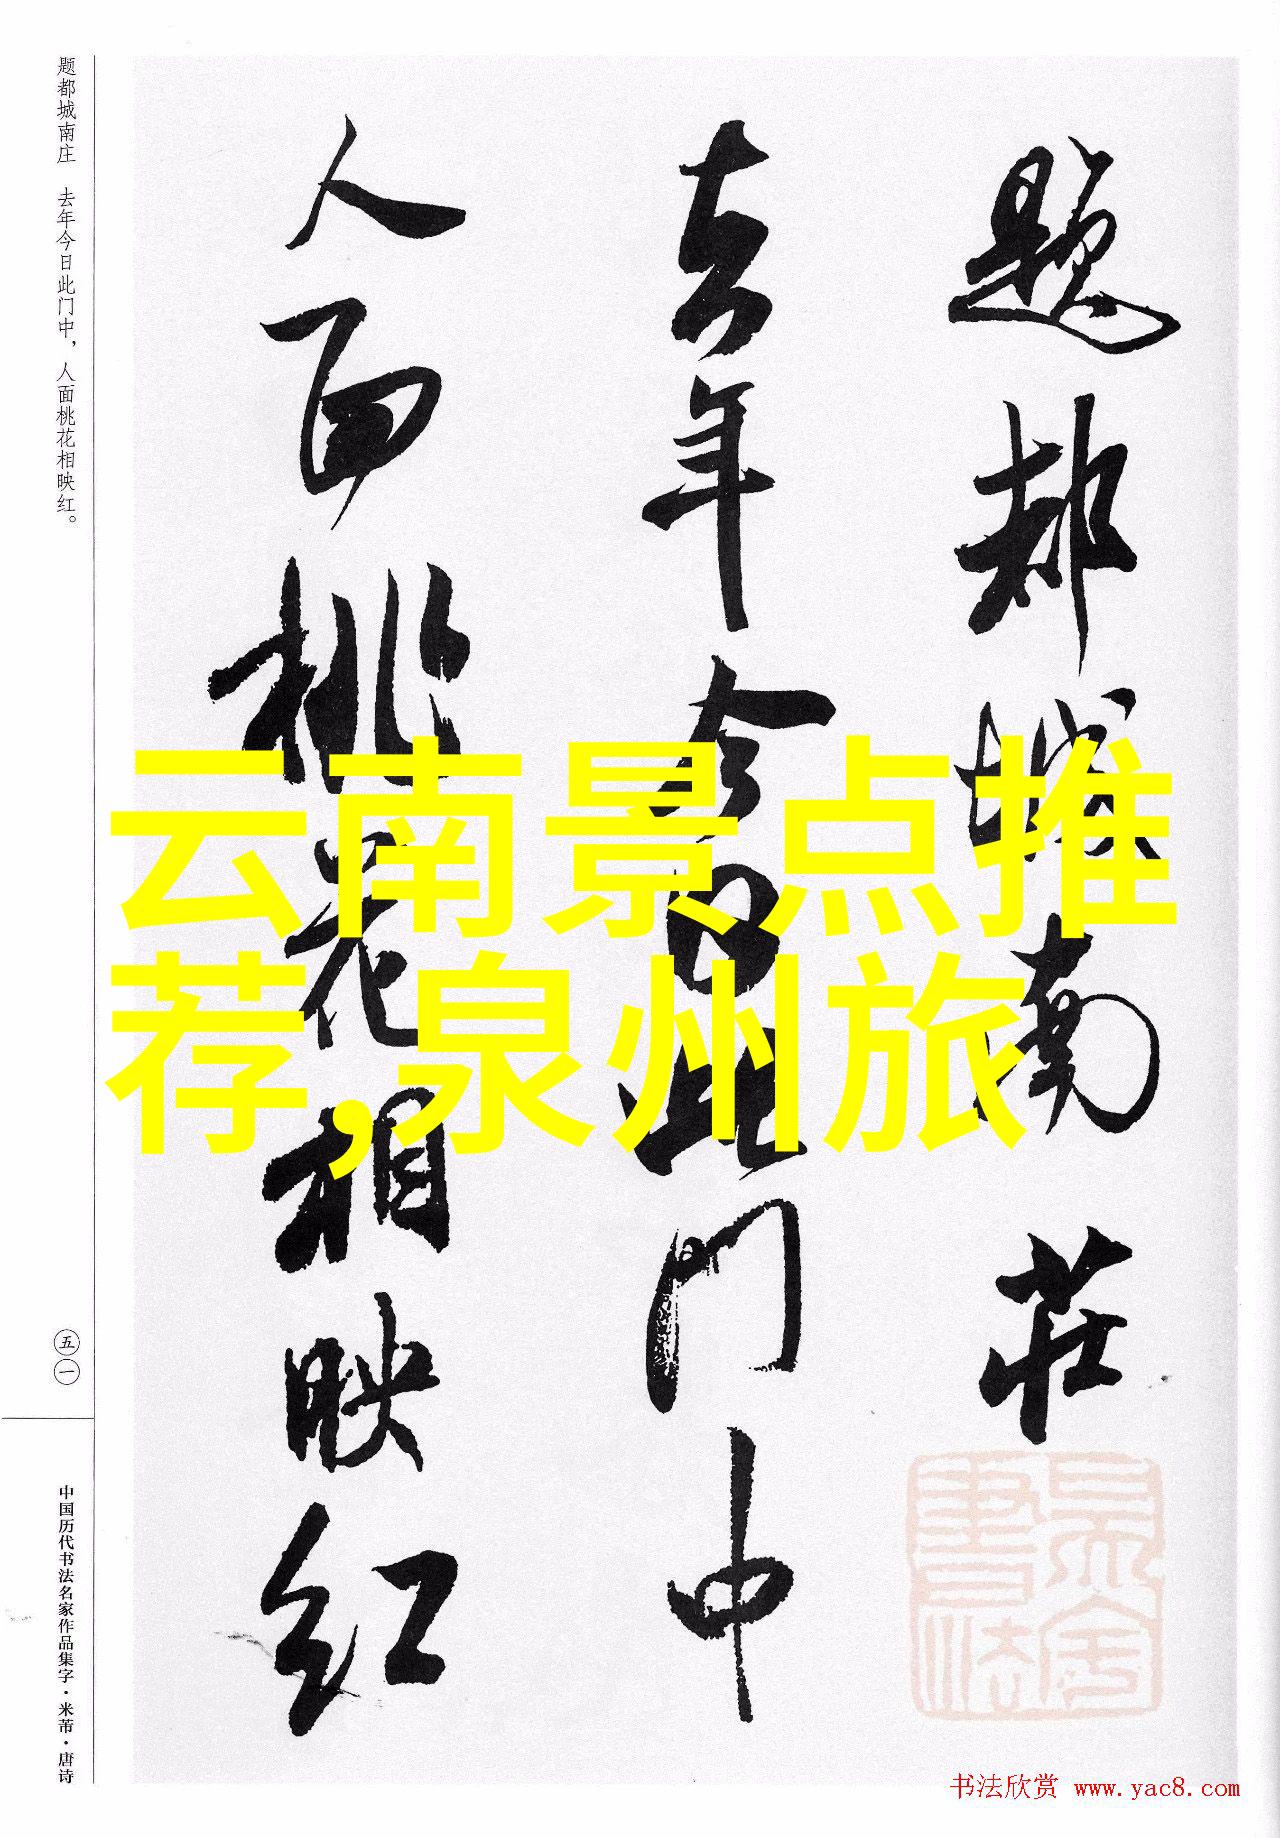 题都城南庄 去年今日此门中，人面桃花相映红。
題都城南莊
去年今日此門中
人面桃花相映红
云南景点推
荐,泉州旅
五一
中国历代书法名家作品集字·米芾·唐诗
书法欣赏 www.yac8.com